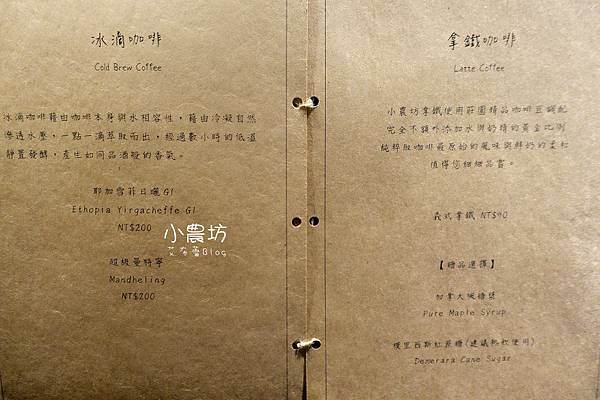 冰滴咖啡
Cold Brew Coffee
冰滴咖啡藉由咖啡本身與水相容性，藉由冷凝自然
滲透水壓，一點一滴萃取而出，經過數小時的低溫
靜置發酵，產生如同品酒般的香氣。
耶加雪菲日曬G1
Ethopia Yirgacheffe G1
NT$200
超級曼特寧
Mandheling
NT$200
小農坊
Blog
拿鐵咖啡
Latte Coffee
小農坊拿鐵使用莊園精品咖啡豆調配
完全不額外添加水與奶精的黃金比例
純粹取咖啡最原始的風味與鮮奶的柔和
值得您細細品嘗。
義式拿鐵 NT$90
【糖品選擇】
加拿大楓糖漿
Pure Maple Syrup
模里西斯紅蔗糖(建議熱飲使用)
Demerara Cane Sugar